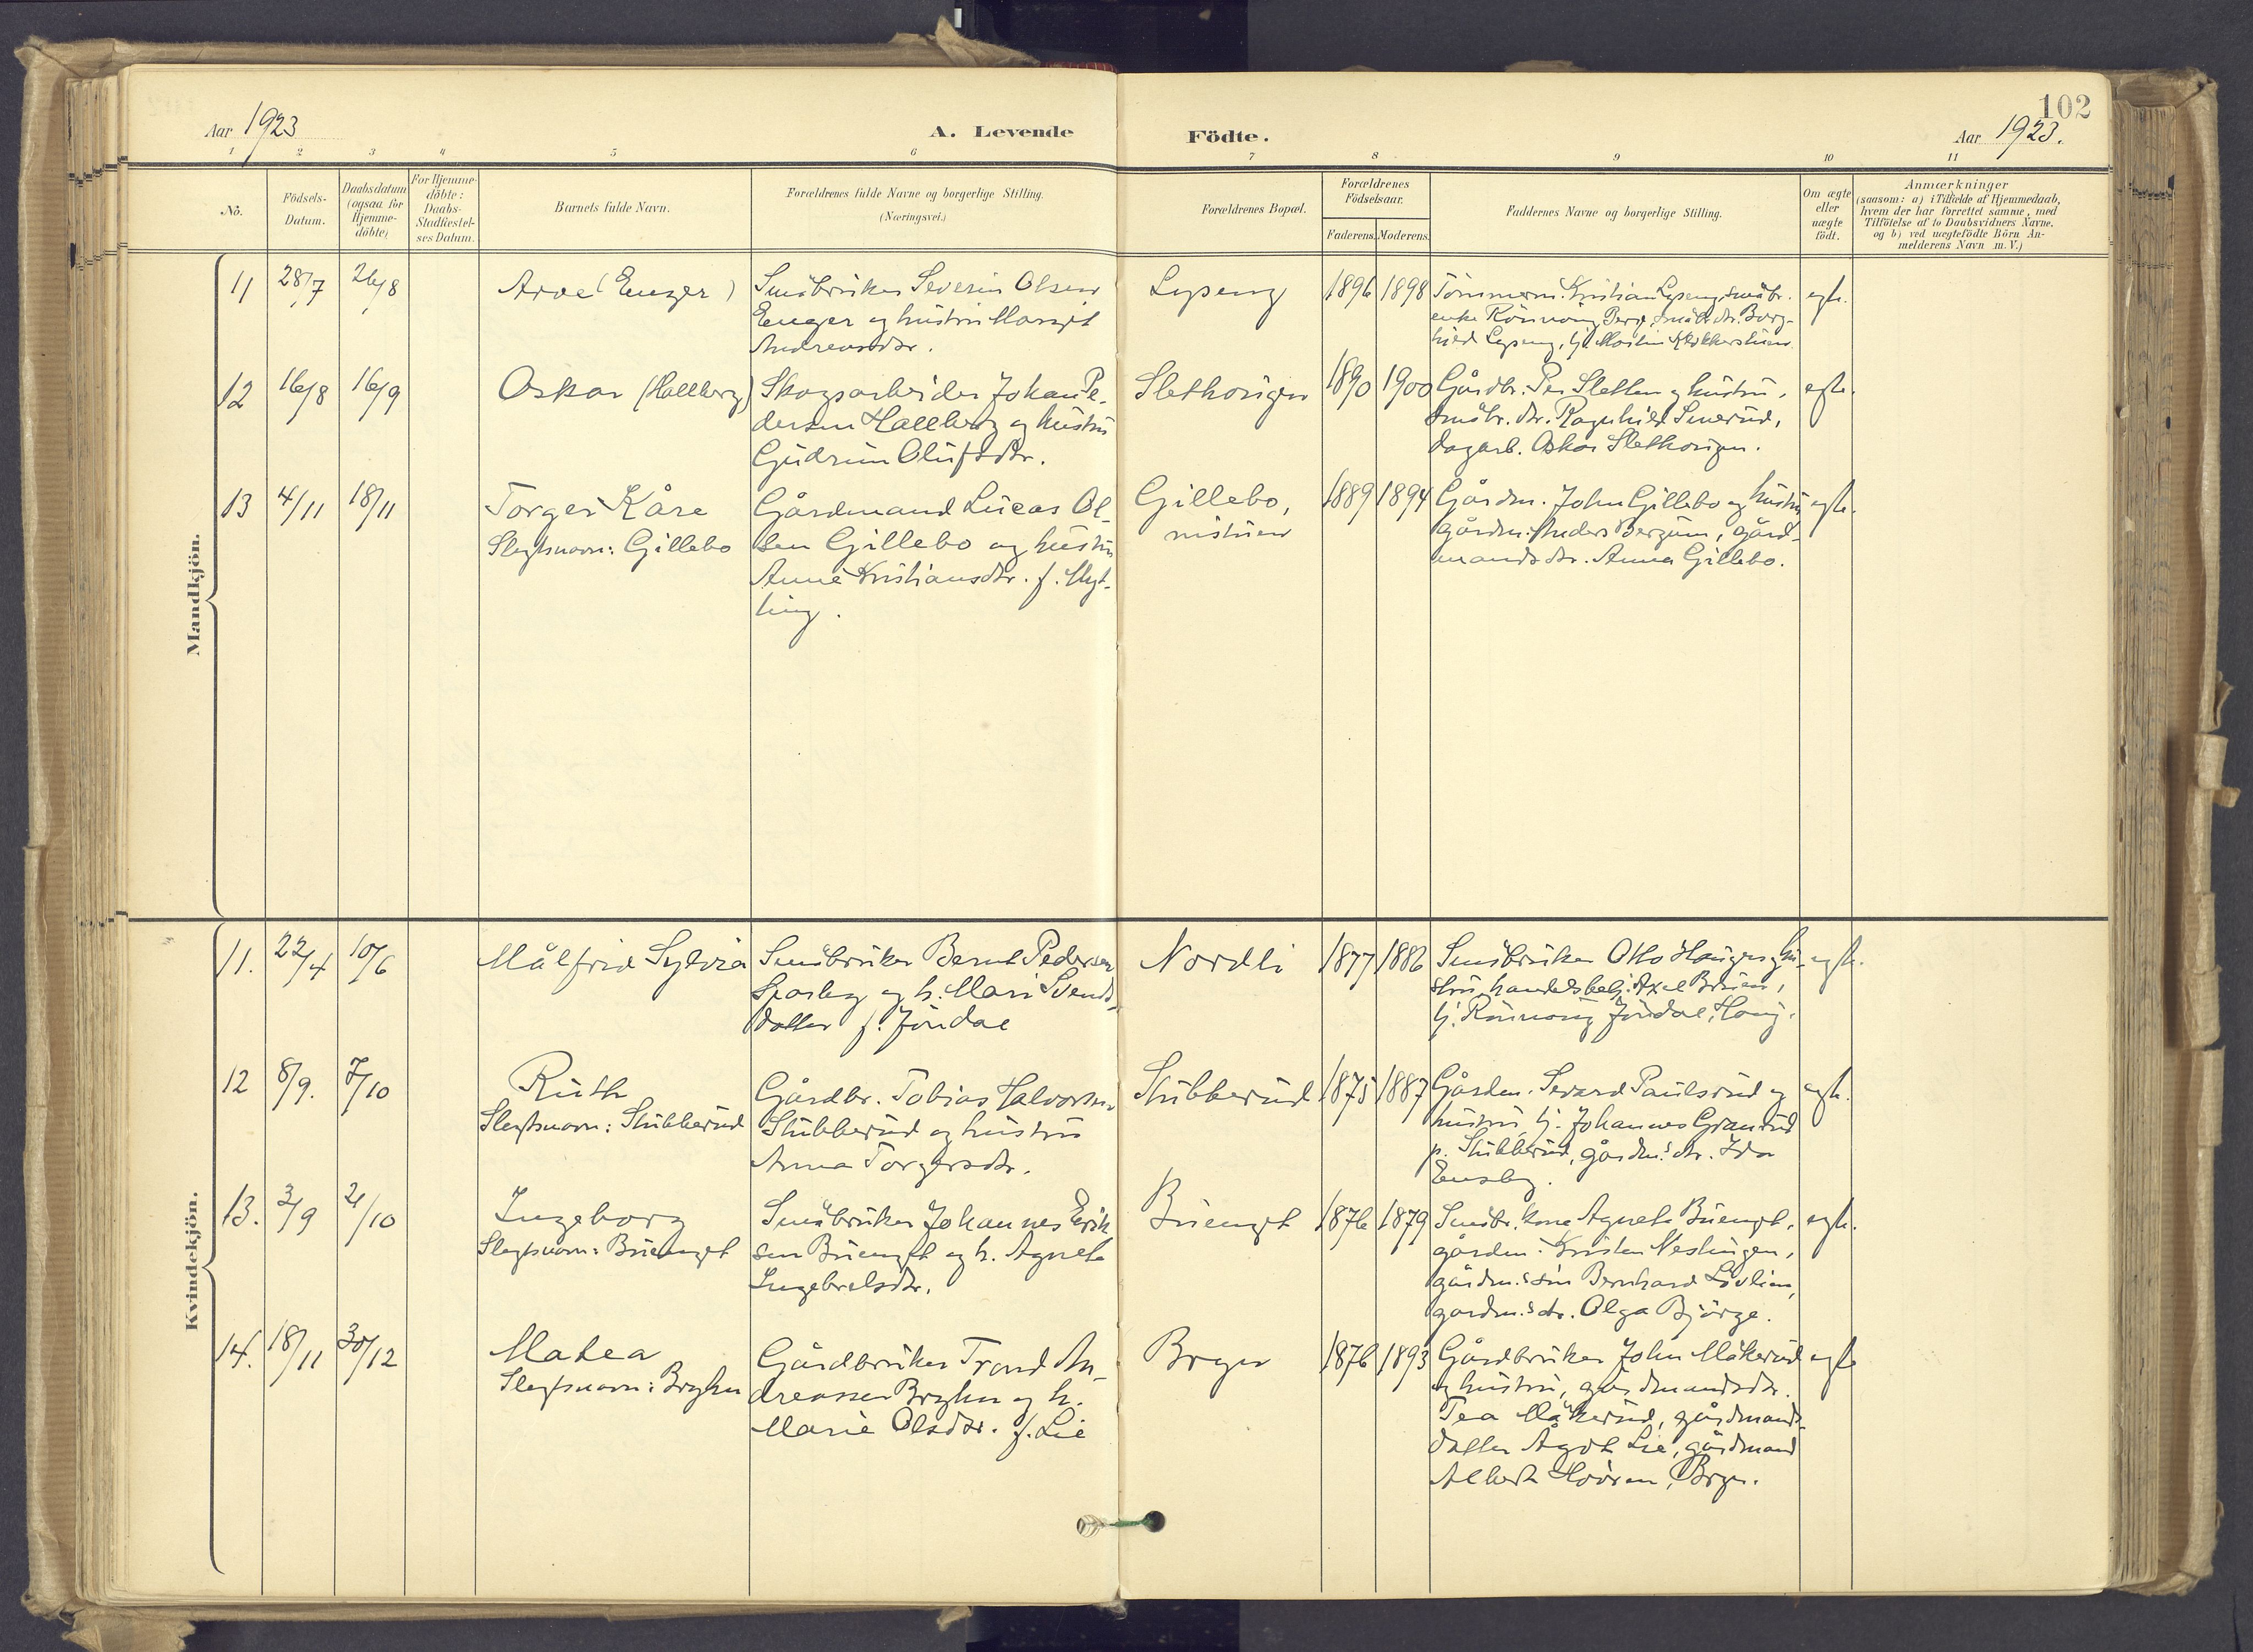 102
Aar 1923
A. Levende Födte.
Aar 1923.
1 2 3 4 5 6 7 8 9 10 11
No.
Födsels-
Datum.
Daabsdatum
(ogsaa for
Hjemme-
döbte)
For Hjemme-
döbte:
Daabs-
Stadfæstel-
ses Datum.
Barnets fulde Navn.
Forældrenes fulde Navne og borgerlige Stilling.
(Næringsvei.)
Forældrenes Bopæl.
Forældrenes
Födselsaar.
Faderens. Moderens.
Faddernes Navne og borgerlige Stilling.
Om ægte
eller
uægte
födt.
Anmærkninger
(saasom: a) i Tilfælde af Hjemmedaab,
hvem der har forrettet samme, med
Tilföielse af to Daabsvidners Navne.
og b) ved uægtefödte Börn An-
melderens Navn m. V.)
Mandkjön.
11 28/7 26/8 Arve (Enger)
Småbruker Severin Olsen
Enger og hustru Margit
Andreasdtr.
Lyseng 1896 1898
Tömmerm. Kristian Lyseng, småbr.
enke Rönnaug Berg, småbr. dtr. Borg-
hild Lyseng, tj. Martin Klokkerstuen
egte.
12 16/8 16/9 Oskar (Hallberg)
Skogsarbeider Johan Pe-
dersen Hallberg og hustru
Gudrun Olufsdtr.
Slethaugen 1890 1900
Gårdbr. Per Sletten og hustru,
småbr. dtr. Ragnhild Smerud,
dagarb. Oskar Slethaugen.
egte.
13 4/11 18/11 Torger Kåre
Slegtsnavn: Gillebo
Gårdmand Lucas Ol-
sen Gillebo og hustru
Anne Kristiansdtr. f. Myt-
ting.
Gillebo,
nistuen
1889 1894
Gårdm. John Gillebo og hustru
gårdm. Anders Bergum, gård-
mands dtr. Anna Gillebo.
egte.
Kvindekjön.
11. 22/4 10/6 Målfrid Sylvia
Småbruker Bernt Pedersen
Sparby og h. Mari Svends-
datter f. Jöndal
Nordli 1877 1886
Småbruker Otto Haugen og hu-
stru, handelsbetj. Axel Bruen,
tj. Rönnaug Jöndal, Haug.
egte.
12 8/9. 7/10 Ruth
Slegtsnavn: Stubberud
Gårdbr. Tobias Halvorsen
Stubberud og hustru
Anna Torgersdtr.
Stubberud 1875 1887
Gårdm. Sevard Paulsrud og
hustru, tj. Johannes Granrud
p. Stubberud, gårdm.s dtr. Ida
Ensby.
egte.
13. 3/9 21/10 Ingeborg
Slegtsnavn: Bruenget
Småbruker Johannes Erik-
sen Bruenget og h. Agnete
Ingebretsdtr.
Bruenget 1876 1879
Småbr. kone Agnete Bruenget,
gårdm. Kristen Neslingen,
gårdm.s sön Bernhard Lövlien,
gardm.s dtr. Olga Björge.
egte.
14. 18/11 30/12 Matea
Slegtsnavn: Bryhn
Gårdbruker Trond An-
dreassen Bryhn og h.
Marie Olsdtr. f. Lie
Bryn 1876 1893
Gårdbruker John Måkerud
og hustru, gårdmandsdtr.
Tea Måkerud, gårdmands-
datter Ågot Lie, gårdmand
Albert Hovren, Bryn.
egte